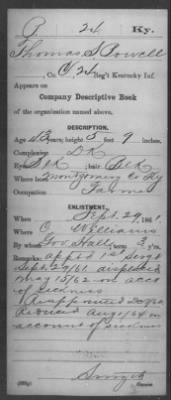 P 24 Ky.
Thomas S. Powell
, Co. C, 24 Reg't Kentucky Inf.
Appears on
Company Descriptive Book
of the organization named above.
DESCRIPTION.
Age 43 years; height 5 feet 9 inches.
Complexion DK
Eyes Blk ; hair Blk
Where born Montgomery Co Ky
Occupation Farmer
ENLISTMENT.
When Sept. 29, 1861.
Where O. Williams
By whom Gov Hall; term 3 y'rs.
Remarks: App't'd 1st Serg't
Sept. 29/61
May 15/62 on acc
of sickness
Reappointed
Reduced Aug 1/64 on
account of sickness
Copyist.